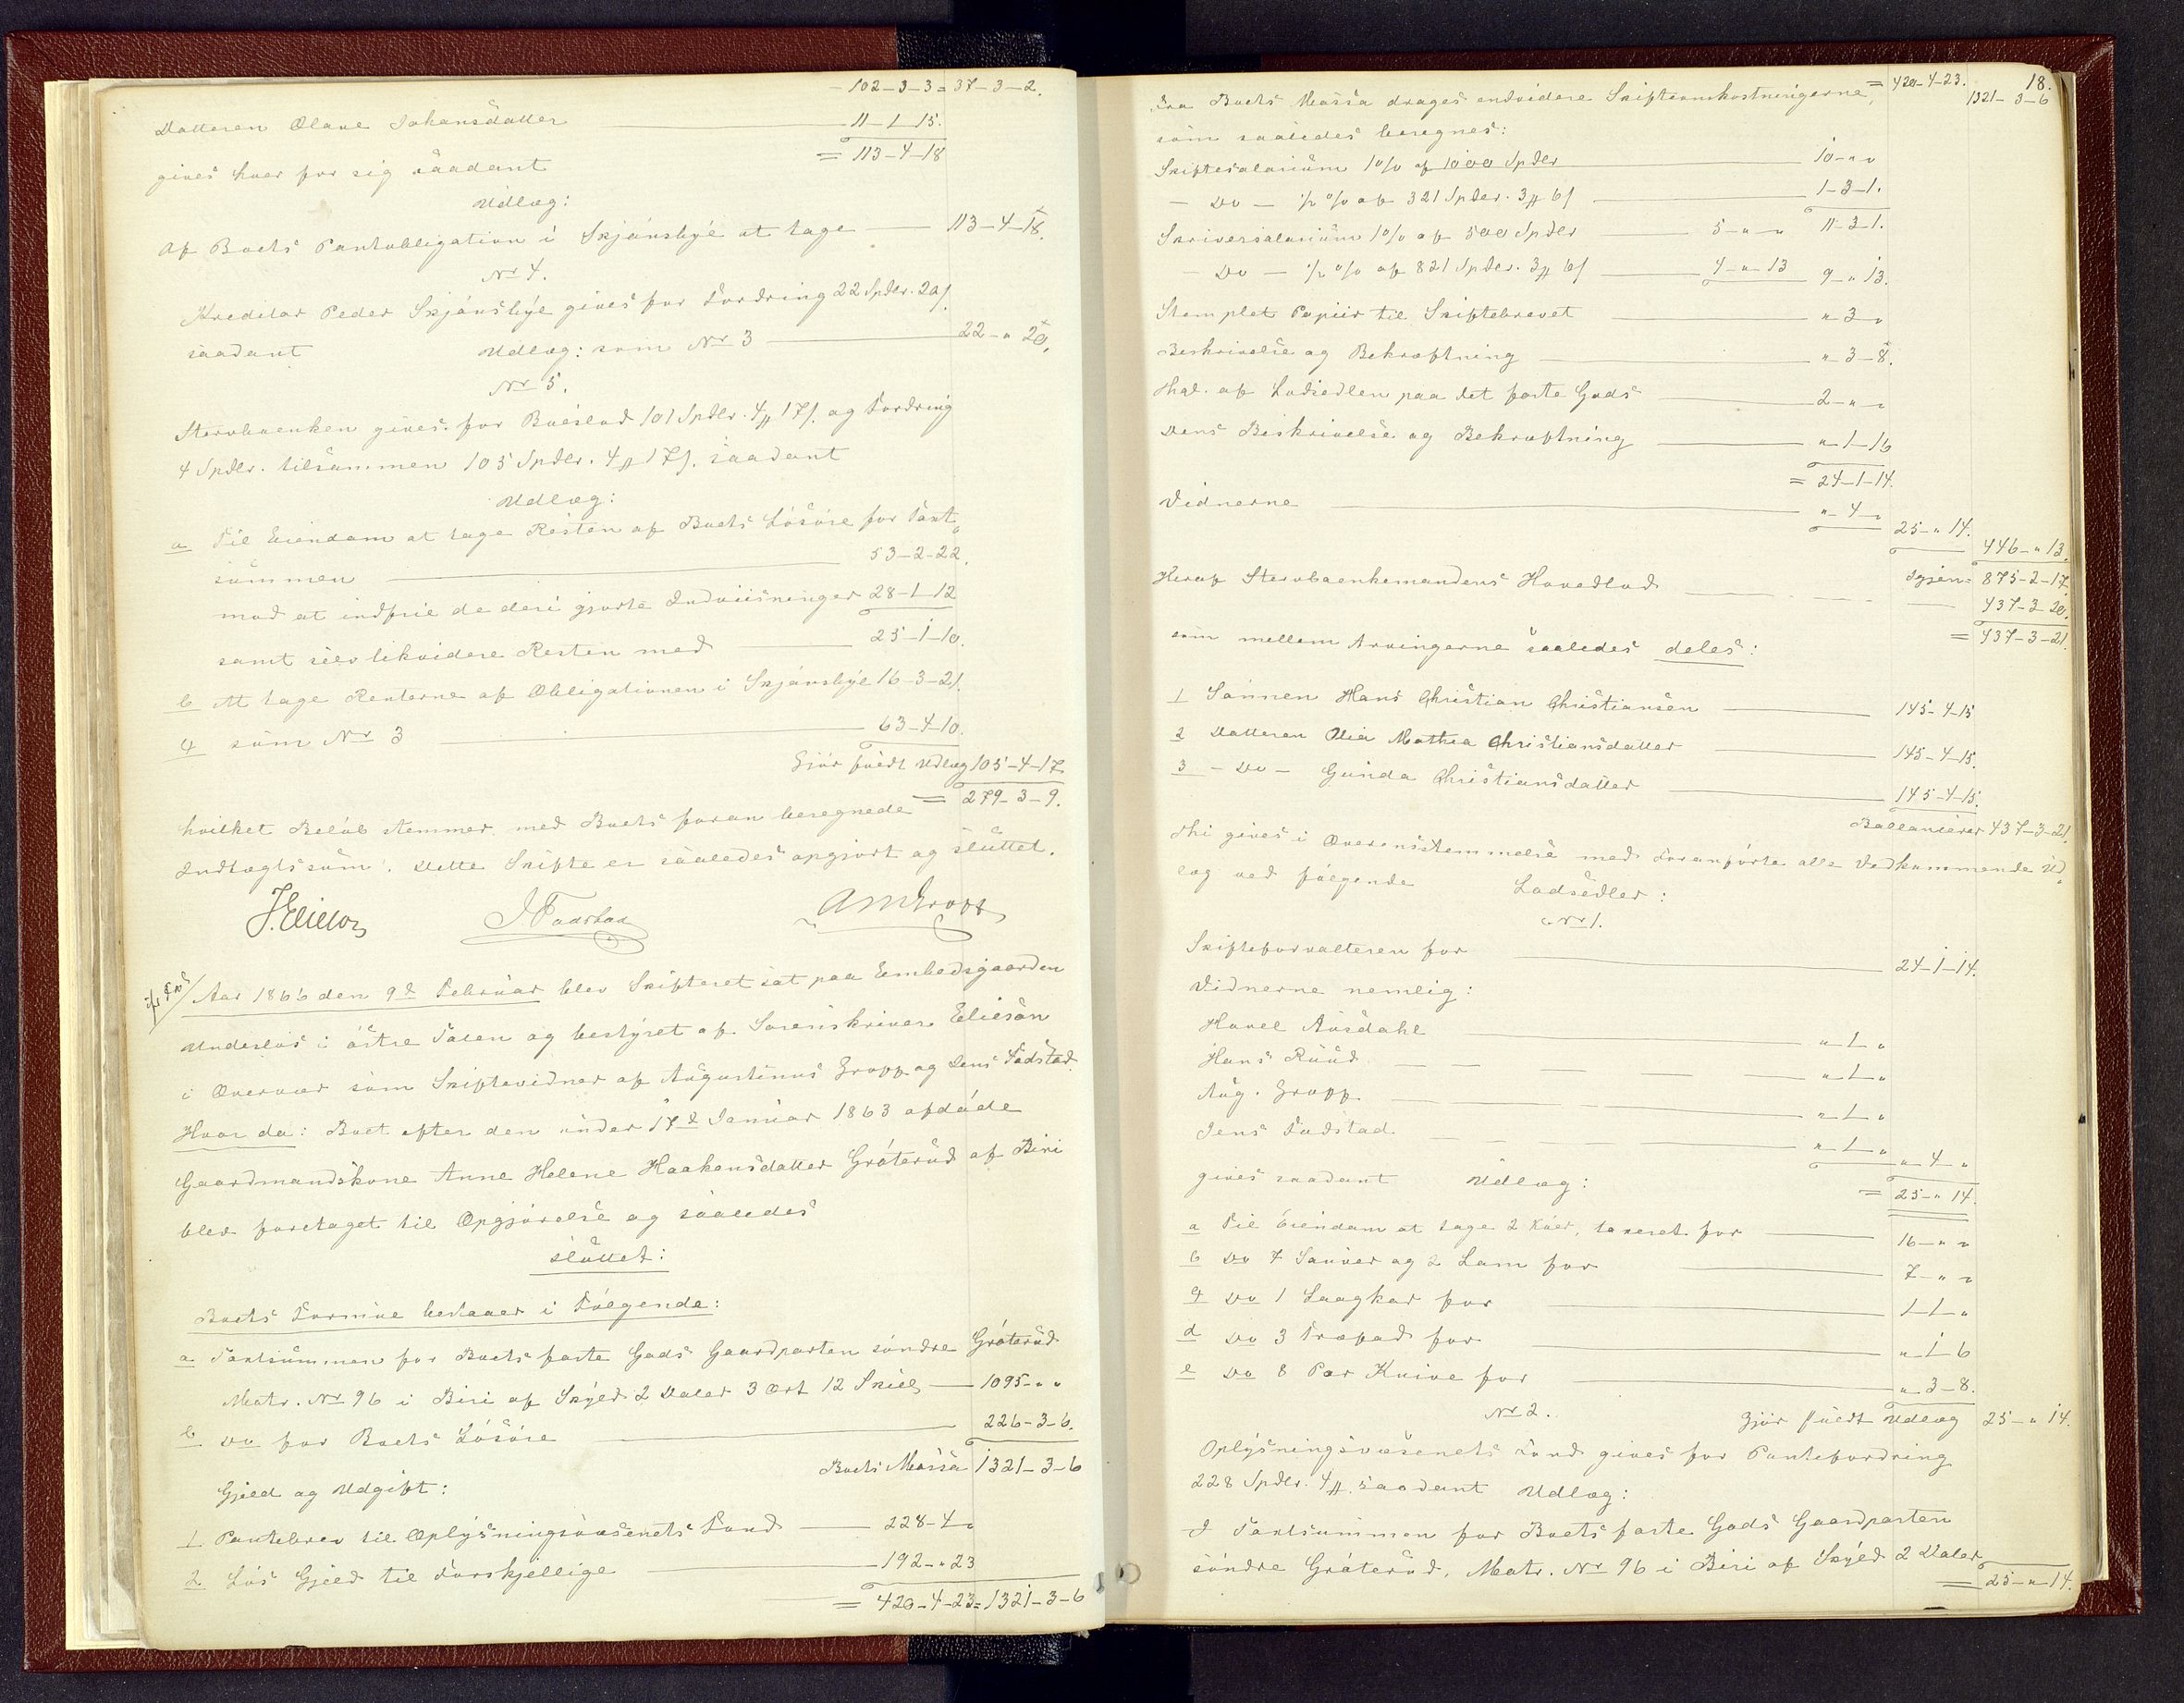 102-3-3 = 37-3-2.
Datteren Olave Johansdatter 11-1-15.
= 113-4-18
gives hver for sig saadant
Udlæg:
Af Boets Pantobligation i Skjønsbye at tage 113-4-18.
No 4.
Kreditor Peder Skjønsbye gives for Fordring 22 Spdlr. 20 ß.
saadant Udlæg: som No 3 22-"-20.
No 5.
Stervboenken gives for Boeslod 101 Spdlr. 4 # 17 ß. og Fordring
4 Spdlr. tilsammen 105 Spdlr. 4 # 17 ß. saadant
Udlæg:
a Til Eiendom at tage Resten af Boets Løsøre for Taxt-
summen 53-2-22.
mod at indfrie de deri gjorte Indviisninger 28-1-12
samt selv likvidere Resten med 25-1-10.
b At tage Renterne af Obligationen i Skjønsbye 16-3-21.
c som No 3 63-4-10.
Gjør fuldt Udlæg 105-4-17
= 279-3-9.
hvilket Beløb stemmer med Boets foran beregnede
Indtægtssum. Dette Skifte er saaledes opgjort og sluttet.
J. Elieson J. Fadstad A M Gropp
Aar 1866 den 9d Februar blev Skifteret sat paa Embedsgaarden
Underlos i østre Toten og bestyret af Sorenskriver Elieson
i Overvær som Skiftevidner af Augustinus Gropp og Jens Fadstad.
Hvor da: Boet efter den under 17d Januar 1863 afdøde
Gaardmandskone Anne Helene Haakensdatter Grøterud af Biri
blev foretaget til Opgjørelse og saaledes
sluttet:
Boets Formue bestaaer i Følgende:
a Taxtsummen for Boets faste Gods Gaardparten søndre Grøterud
Matr. No 96 i Biri af Skyld 2 Daler 3 Ort 12 Skill 1095-"-"
b Do for Boets Løsøre 226-3-6.
Boets Massa 1321-3-6
Gjeld og Udgift:
1 Pantebrev til Oplysningsvæsenets Fond 228-4-"
2 Løs Gjeld til Forskjellige 192-"-23
= 420-4-23 = 1321-3-6
18.
= 420-4-23. 1321-3-6
Fra Boets Massa drages endvidere Skifteomkostningerne,
som saaledes beregnes:
Skiftesalarium 1 % af 1000 Spdlr 10-"-"
- Do - ½ % af 321 Spdlr. 3 # 6 ß 1-3-1.
Skriversalarium 1 % af 500 Spdlr 5-"-" 11-3-1.
- Do - ½ % af 821 Spdlr. 3 # 6 ß 4-"-13 9-"-13.
Stemplet Papiir til Skiftebrevet "-3-"
Beskrivelse og Bekræftning "-3-8.
Thgl. af Lodsedlen paa det faste Gods 2-"-"
Dens Beskrivelse og Bekræftning "-1-16
= 24-1-14.
Vidnerne "-4-"
25-"-14.
446-"-13.
Igjen = 875-2-17.
Heraf Stervboenkemandens Hovedlod 437-3-20.
= 437-3-21.
som mellem Arvingerne saaledes deles:
1 Sønnen Hans Christian Christiansen 145-4-15
2 Datteren Olia Mathea Christiansdatter 145-4-15.
3 - Do - Gunda Christiansdatter 145-4-15.
Ballancerer 437-3-21.
Thi gives i Overensstemmelse med Foranførte alle Vedkommende Ud-
læg ved følgende Lodsedler:
No 1.
Skifteforvalteren for 24-1-14.
Vidnerne nemlig:
Havel Aasdahl "-1-"
Hans Ruud "-1-"
Aug. Gropp "-1-"
Jens Fadstad "-1-" "-4-"
gives saadant Udlæg: = 25-"-14.
a Til Eiendom at tage 2 Køer, taxeret for 16-"-"
b Do 7 Sauer og 2 Lam for 7-"-"
c Do 1 Laagkar for 1-1-"
d Do 3 Træfad for "-1-6
e Do 8 Par Knive for "-3-8.
No 2. Gjør fuldt Udlæg 25-"-14.
Oplysningsvæsenets Fond gives for Pantefordring
228 Spdlr. 4 #. saadant Udlæg:
I Taxtsummen for Boets faste Gods Gaardparten
søndre Grøterud, Matr. No 96 i Biri af Skyld 2 Daler
= 25-"-14.